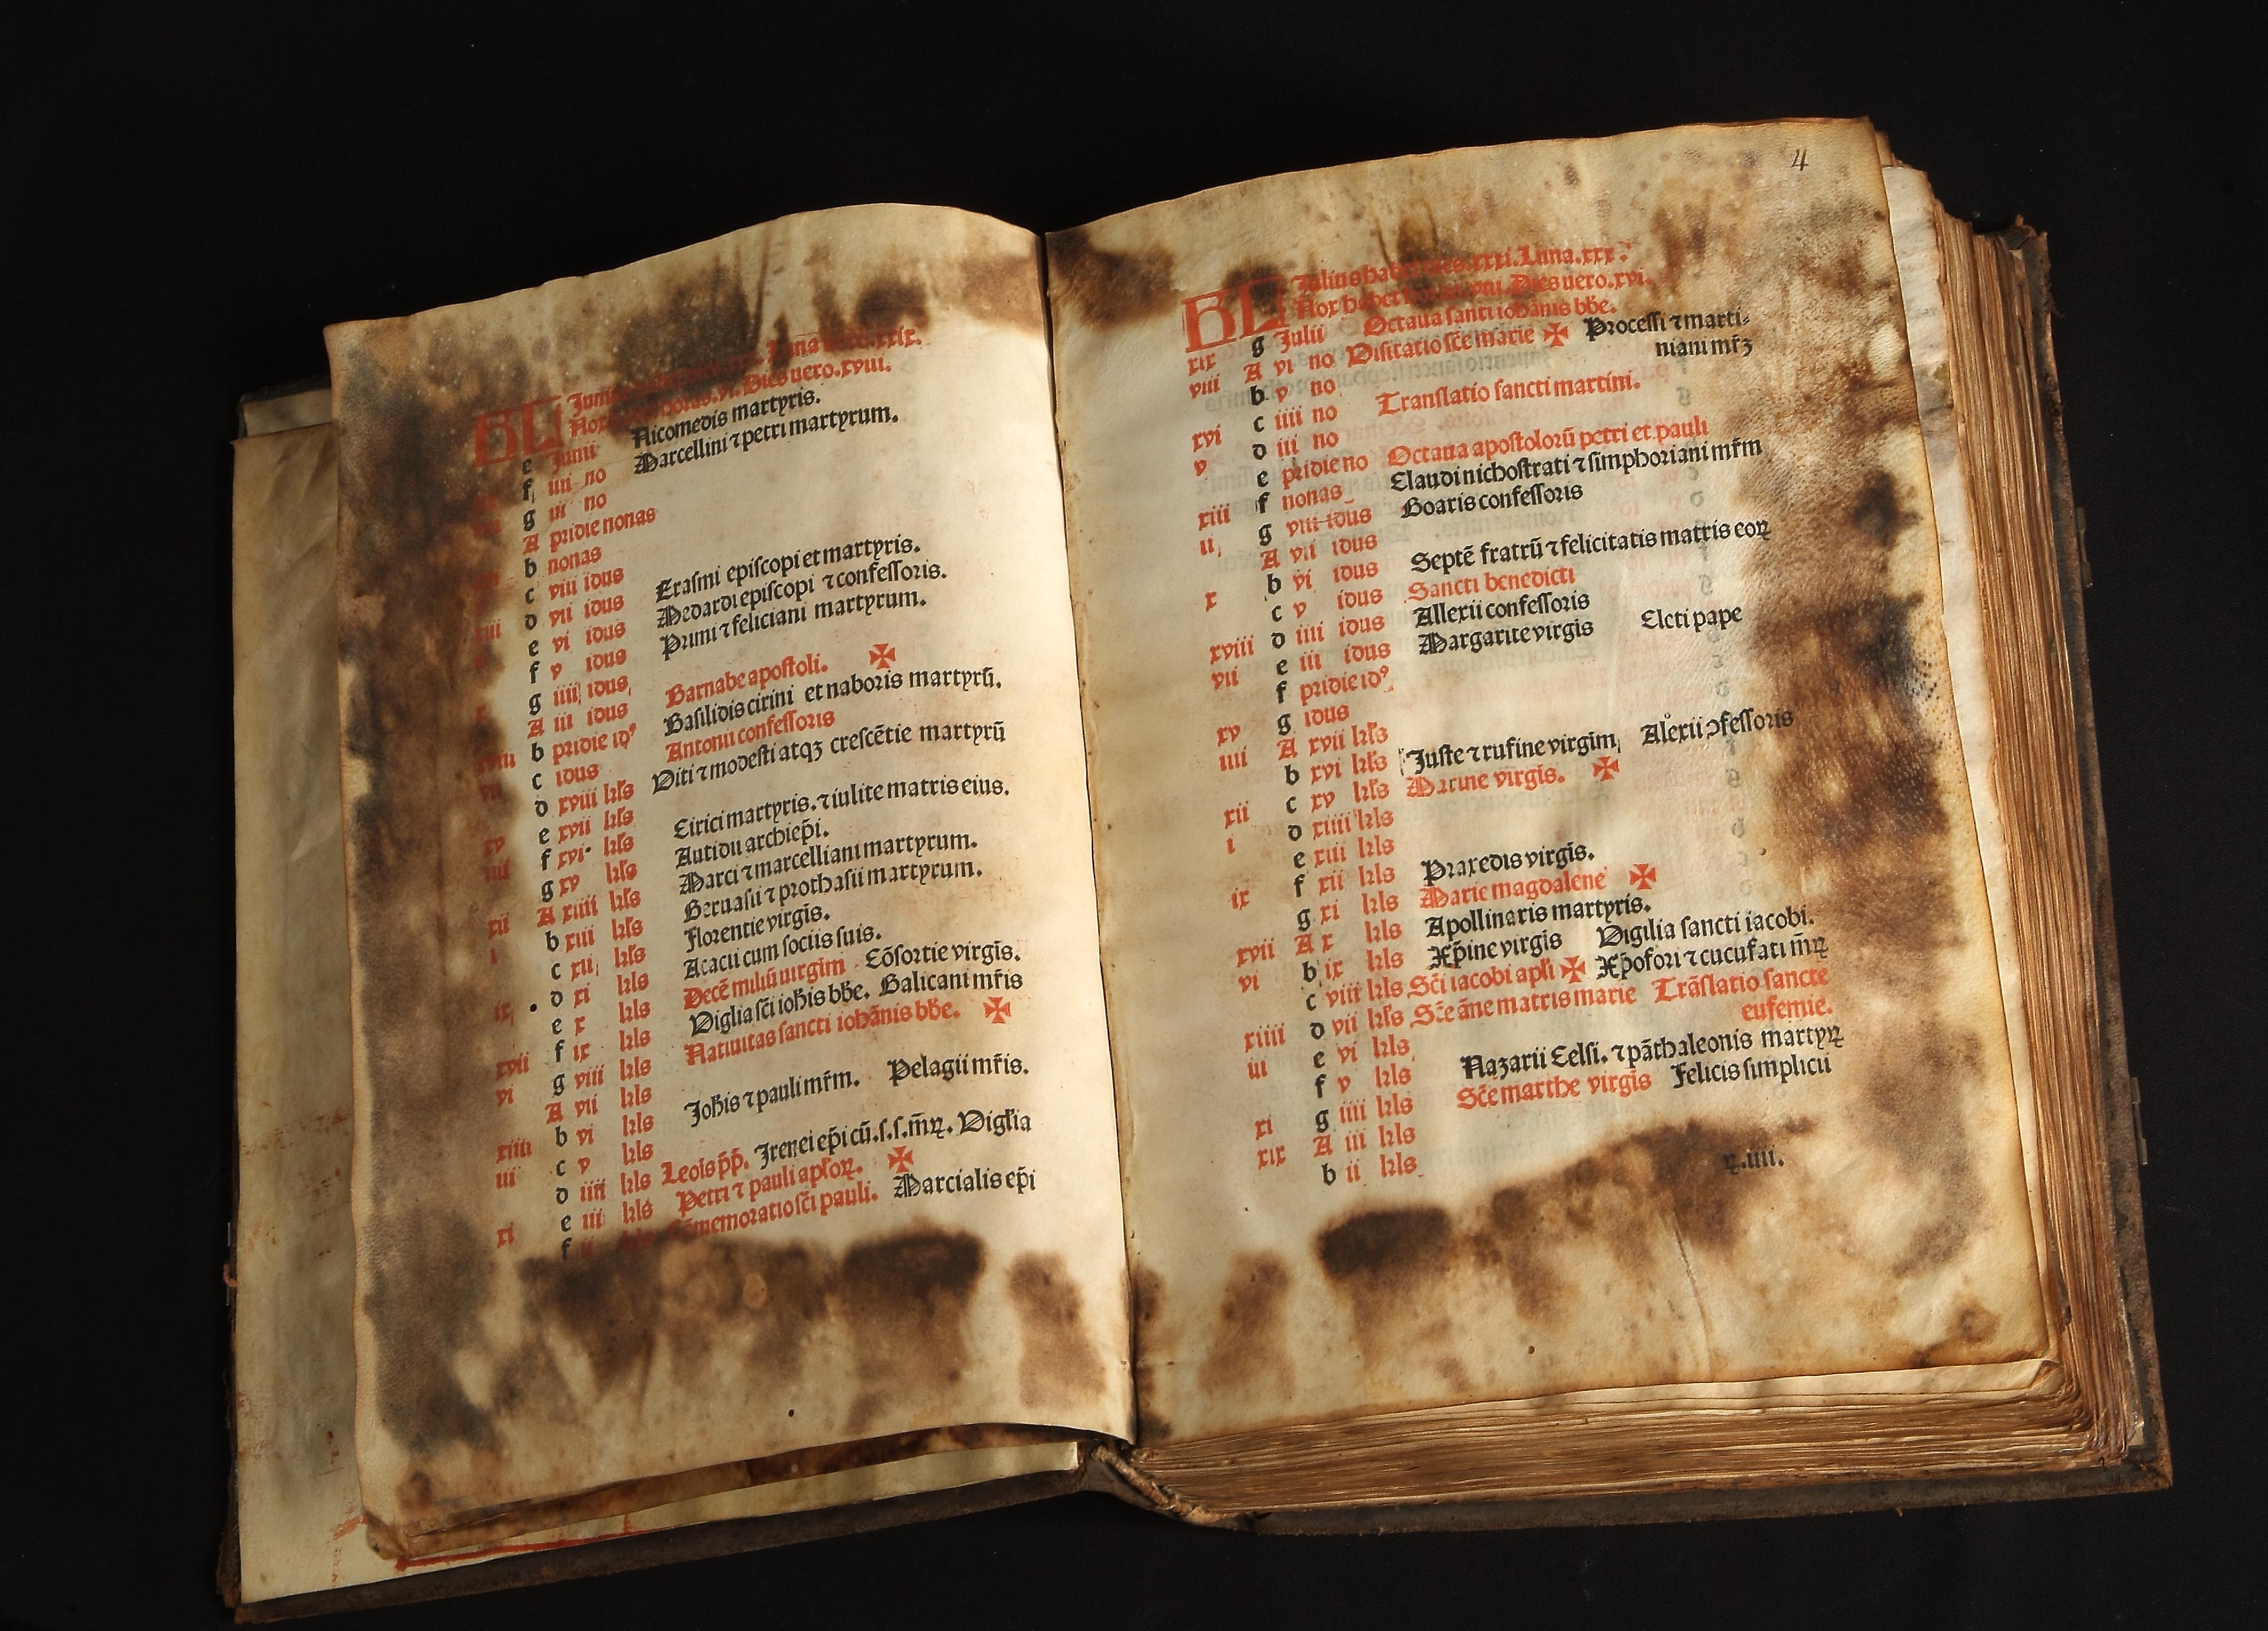 xxix.
KL
Nox horas. vi. Dies uero. xviii.
e Junii Nicomedis martyris.
f iiii no Marcellini ⁊ petri martyrum.
g iii no
A pridie nonas
b nonas
c viii idus Erasmi episcopi et martyris.
d vii idus Medardi episcopi ⁊ confessoris.
e vi idus Primi ⁊ feliciani martyrum.
f v idus
g iiii idus Barnabe apostoli. ✠
A iii idus Basilidis cirini et naboris martyrū.
b pridie idꝰ Antonii confessoris
c idus Viti ⁊ modesti atqꝫ crescētie martyrū
d xviii kl̄s
xv e xvii kl̄s Cirici martyris. ⁊ iulite matris eius.
iiii f xvi kl̄s Antidii archiep̄i.
g xv kl̄s Marci ⁊ marcelliani martyrum.
xii A xiiii kl̄s Geruasii ⁊ prothasii martyrum.
i b xiii kl̄s Florentie virgīs.
c xii kl̄s Acacii cum sociis suis.
ix d xi kl̄s Decē miliū uirgīm Cōsortie virgīs.
e x kl̄s Viglia sc̄i ioh̄is bb̄e. Galicani mr̄is
xvii f ix kl̄s Natiuitas sancti iohānis bb̄e. ✠
vi g viii kl̄s
A vii kl̄s Joh̄is ⁊ pauli mr̄m. Pelagii mr̄is.
xiiii b vi kl̄s
iii c v kl̄s Leōis pp̄. Irenei ep̄i cū. s. s. m̄ꝝ. Vigl̄ia
d iiii kl̄s Petri ⁊ pauli apl̄oꝝ. ✠
xi e iii kl̄s Cōmemoratio sc̄i pauli. Marcialis ep̄i
f
4
KL Julius habet dies. xxxi. Luna. xxx.
Nox habet horas. viii. Dies uero. xvi.
xix g Julii Octaua sancti iohānis bb̄e.
viii A vi no Visitatio sc̄e marie ✠ Processi ⁊ marti-
niani mr̄ꝫ
b v no
xvi c iiii no Translatio sancti martini.
v d iii no
e pridie no Octaua apostolorū petri et pauli
xiii f nonas Claudi nichostrati ⁊ simphoriani mr̄m
ii g viii idus Boaris confessoris
A vii idus
x b vi idus Septē fratrū ⁊ felicitatis matris eoꝝ
c v idus Sancti benedicti
xviii d iiii idus Allexii confessoris
vii e iii idus Margarite virgīs Elcti pape
f pridie idꝰ
xv g idus
iiii A xvii kl̄s
b xvi kl̄s Juste ⁊ rufine virgīm Alexii ꝯfessoris
xii c xv kl̄s Marine virgīs. ✠
i d xiiii kl̄s
e xiii kl̄s
ix f xii kl̄s Praxedis virgīs.
g xi kl̄s Marie magdalene ✠
xvii A x kl̄s Apollinaris martyris.
vi b ix kl̄s Xp̄ine virgīs Vigilia sancti iacobi.
c viii kl̄s Sc̄i iacobi apl̄i ✠ Xp̄ofori ⁊ cucufati m̄ꝝ
xiiii d vii kl̄s Sc̄e āne matris marie Trāslatio sancte
eufemie.
iii e vi kl̄s
f v kl̄s Nazarii Celsi. ⁊ pāthaleonis martyꝝ
xi g iiii kl̄s Sc̄e marthe virgīs Felicis simplicii
xix A iii kl̄s
b ii kl̄s
ꝝ. iiii.